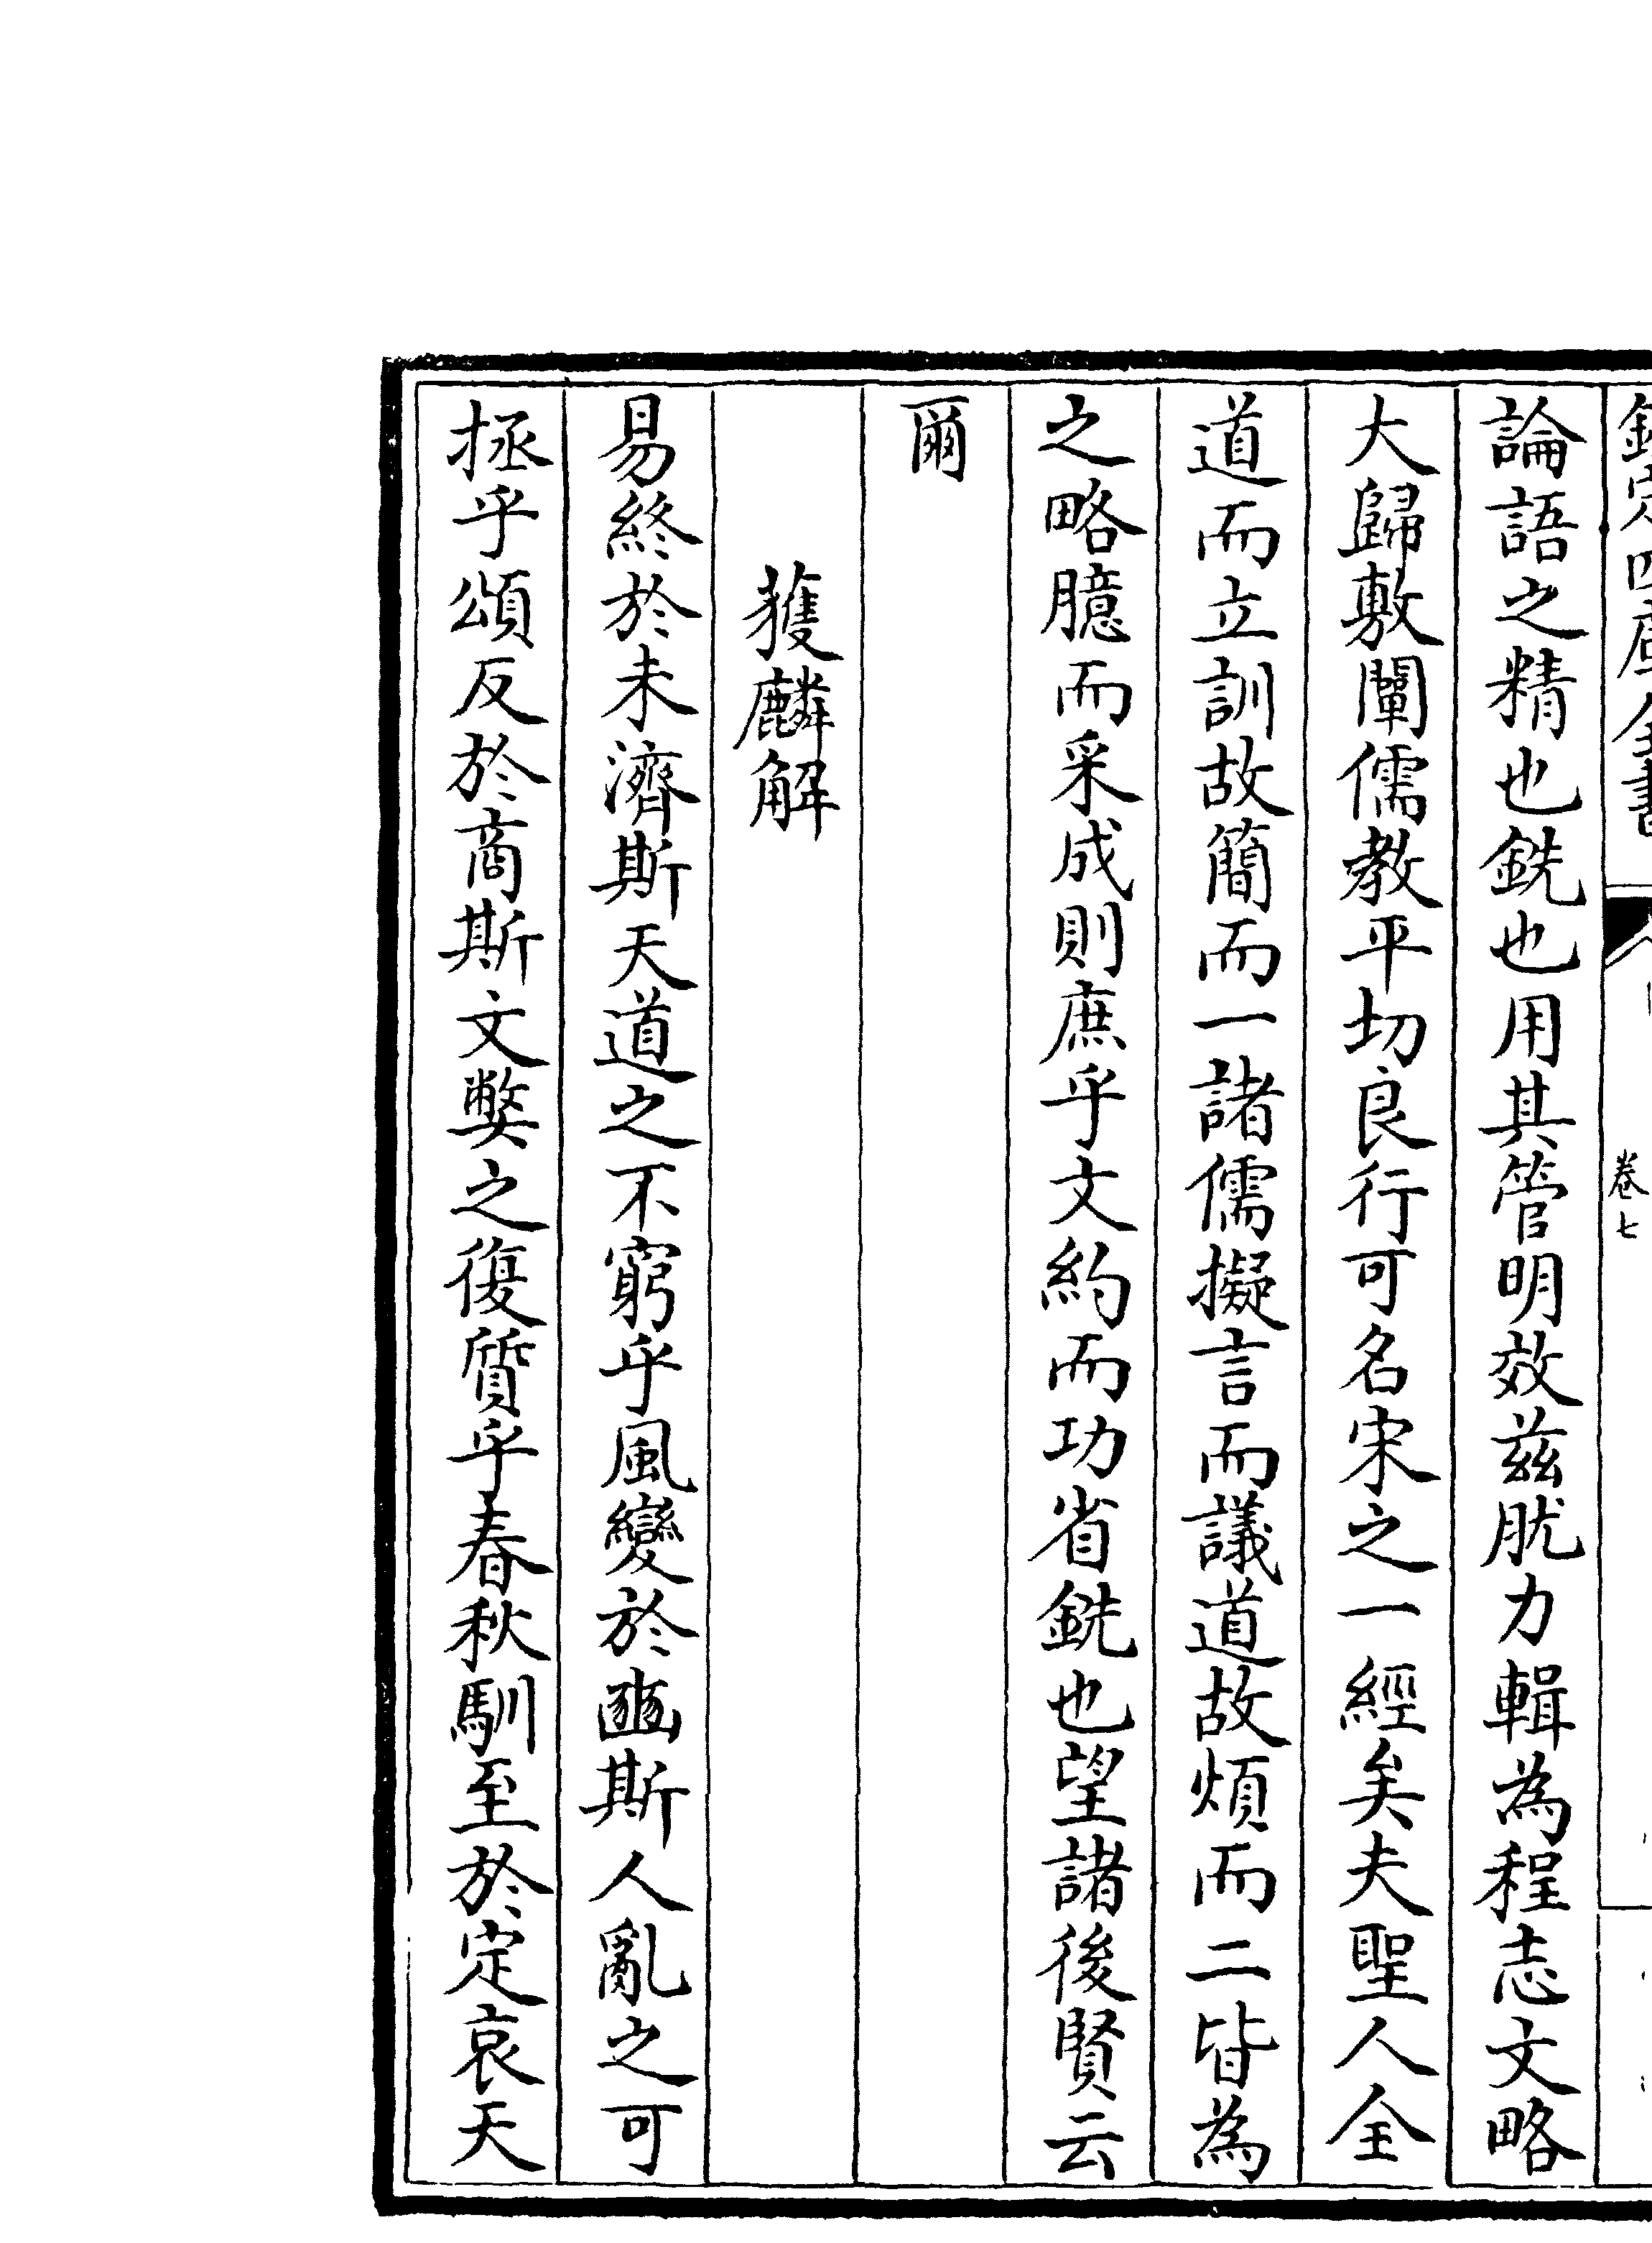 欽定四庫全書 卷七
論語之精也銑也用其管明效兹肬力輯為程志文略
大歸敷闡儒教平切良行可名宋之一經矣夫聖人全
道而立訓故簡而一諸儒擬言而議道故煩而二皆為
之略臆而采成則庶乎文約而功省銑也望諸後賢云
爾
獲麟解
易終於未濟斯天道之不窮乎風變於豳斯人亂之可
拯乎頌反於商斯文弊之復質乎春秋馴至於定哀天